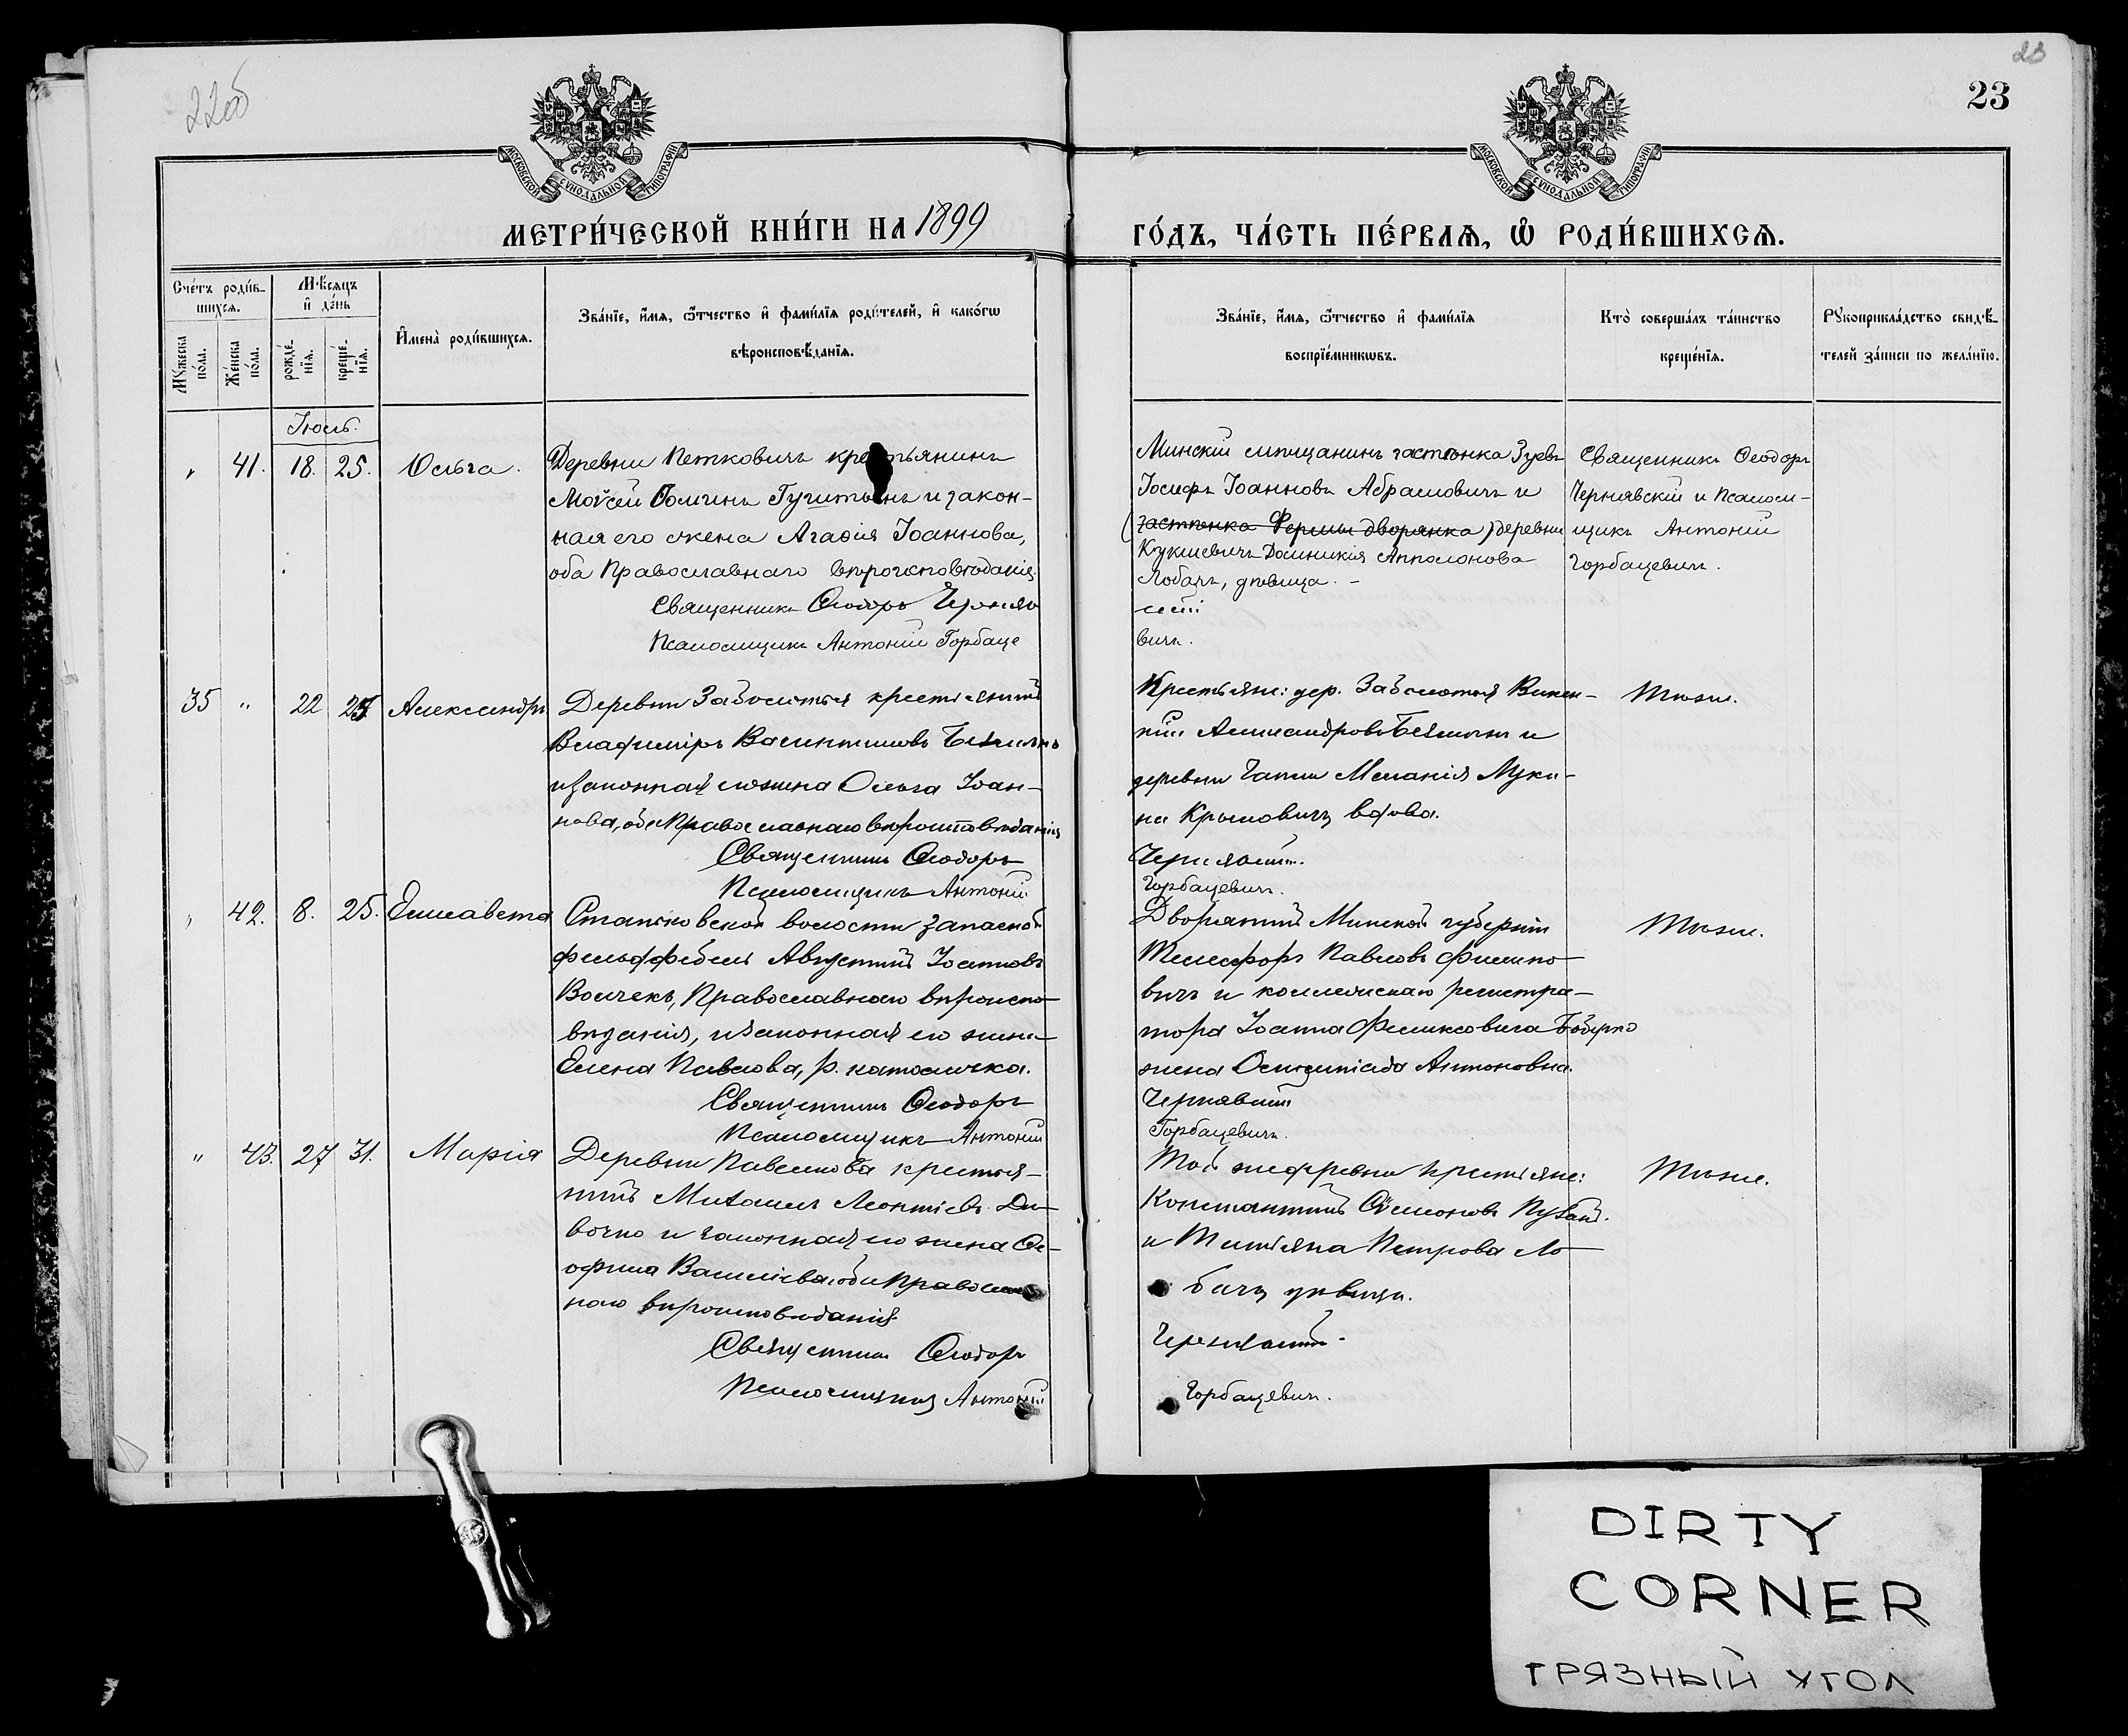 22об
23
23
МОСКОВСКОЙ СѴНОДАЛЬНОЙ ТИПОГРАФІИ
МОСКОВСКОЙ СѴНОДАЛЬНОЙ ТИПОГРАФІИ
МЕТРИ́ЧЕСКОЙ КНИ́ГИ НА 1899
ГО́ДЪ, ЧА́СТЬ ПЕ́РВАѦ, Ѡ҆ РОДИ́ВШИХСѦ.
Сче́тъ роди́в-
шихсѧ.
Мꙋ́жеска по́ла.
Же́нска по́ла.
Мѣ́сѧцъ и҆ де́нь
рожде́-нїѧ.
креще́-нїѧ.
И҆мена̀ роди́вшихсѧ.
Зва́нїе, и҆́мѧ, ѻ҆́тчество и҆ фами́лїѧ роди́телей, и҆ како́гѡ
вѣроисповѣ́данїѧ.
Зва́нїе, и҆́мѧ, ѻ҆́тчество и҆ фами́лїѧ
воспрїе́мникѡвъ.
Кто̀ соверша́лъ та́инство
креще́нїѧ.
Рꙋкоприкла́дство свидѣ́-
телей за́писи по жела́нїю.
Іюль.
" 41. 18. 25. Ольга.
Деревни Петковичъ крестьянинъ
Моѵсей Гущитынъ и закон-
ная его жена Агаѳія Іоаннова,
оба Православнаго вѣроисповѣданія.
Священникъ Ѳеодоръ Черняв
Псаломщикъ Антоній Горбаце
Минскій мѣщанинъ застѣнка Зуевъ
Іосифъ Іоанновъ Абрамовичъ и
(застѣнка Фермы дворянка) деревни
Кукшевичъ Домникія Апполонова
Лобачъ, дѣвица. -
скій
вичъ.
Священникъ Ѳеодоръ
Чернявскій и Псалом-
щикъ Антоній
Горбацевичъ.
35 " 22 25 Александръ
Деревни Заболотья крестьянинъ
Владиміръ Викентіевъ
и законная его жена Ольга Іоан-
нова, оба Православнаго вѣроисповѣданія
Священникъ Ѳеодоръ
Псаломщикъ Антоній
Крестьяне: дер. Заболотья Викен-
тій Александровъ и
деревни Меланія Луки-
на Крымовичъ вдова.
Чернявскій.
Горбацевичъ.
Тѣже.
" 42. 8. 25. Елисавета
Станьковской волости запасной
фельдфебель Августинъ Іоанновъ
Волчекъ, Православнаго вѣроиспо-
вѣданія, и законная его жена
Елена Павлова, р. католичка.
Священникъ Ѳеодоръ
Псаломщикъ Антоній
Дворянинъ Минской губерніи
Телесфоръ Павловъ Филипо-
вичъ и коллежскаго регистра-
тора Іоанна Феликсовича
жена Антоновна.
Чернявскій
Горбацевичъ.
Тѣже.
" 43. 27 31. Марія
Деревни Павелкова крестья-
нинъ Михаилъ Леонтіевъ Ди-
вочко и законная его жена Ѳе-
офила Василіева, оба Православ-
наго вѣроисповѣданія.
Священникъ Ѳеодоръ
Псаломщикъ Антоній
Той же деревни крестьяне:
Константинъ Сѵмеоновъ
и Татіяна Петрова Ло-
бачъ дѣвица.
Чернявскій.
Горбацевичъ.
Тѣже.
DIRTY
CORNER
ГРЯЗНЫЙ УГОЛ